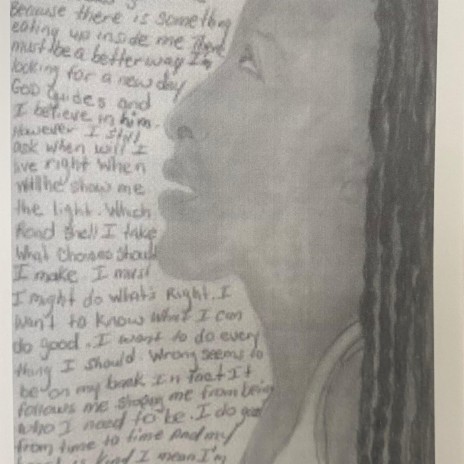 Because there is something
eating up inside me There
must be a better way I'm
looking for a new day
God Guides and
I believe in him.
However I still
ask when will I
live right when
will he show me
the light. Which
Road shell I take
What Choises Should
I make I must
I might do what's Right. I
Want to know what I can
do good. I want to do every
thing I should. Wrong seems to
be on my back In fact It
follows me stoping me from being
who I need to be. I do good
from time to time and my
is kind I mean I'm